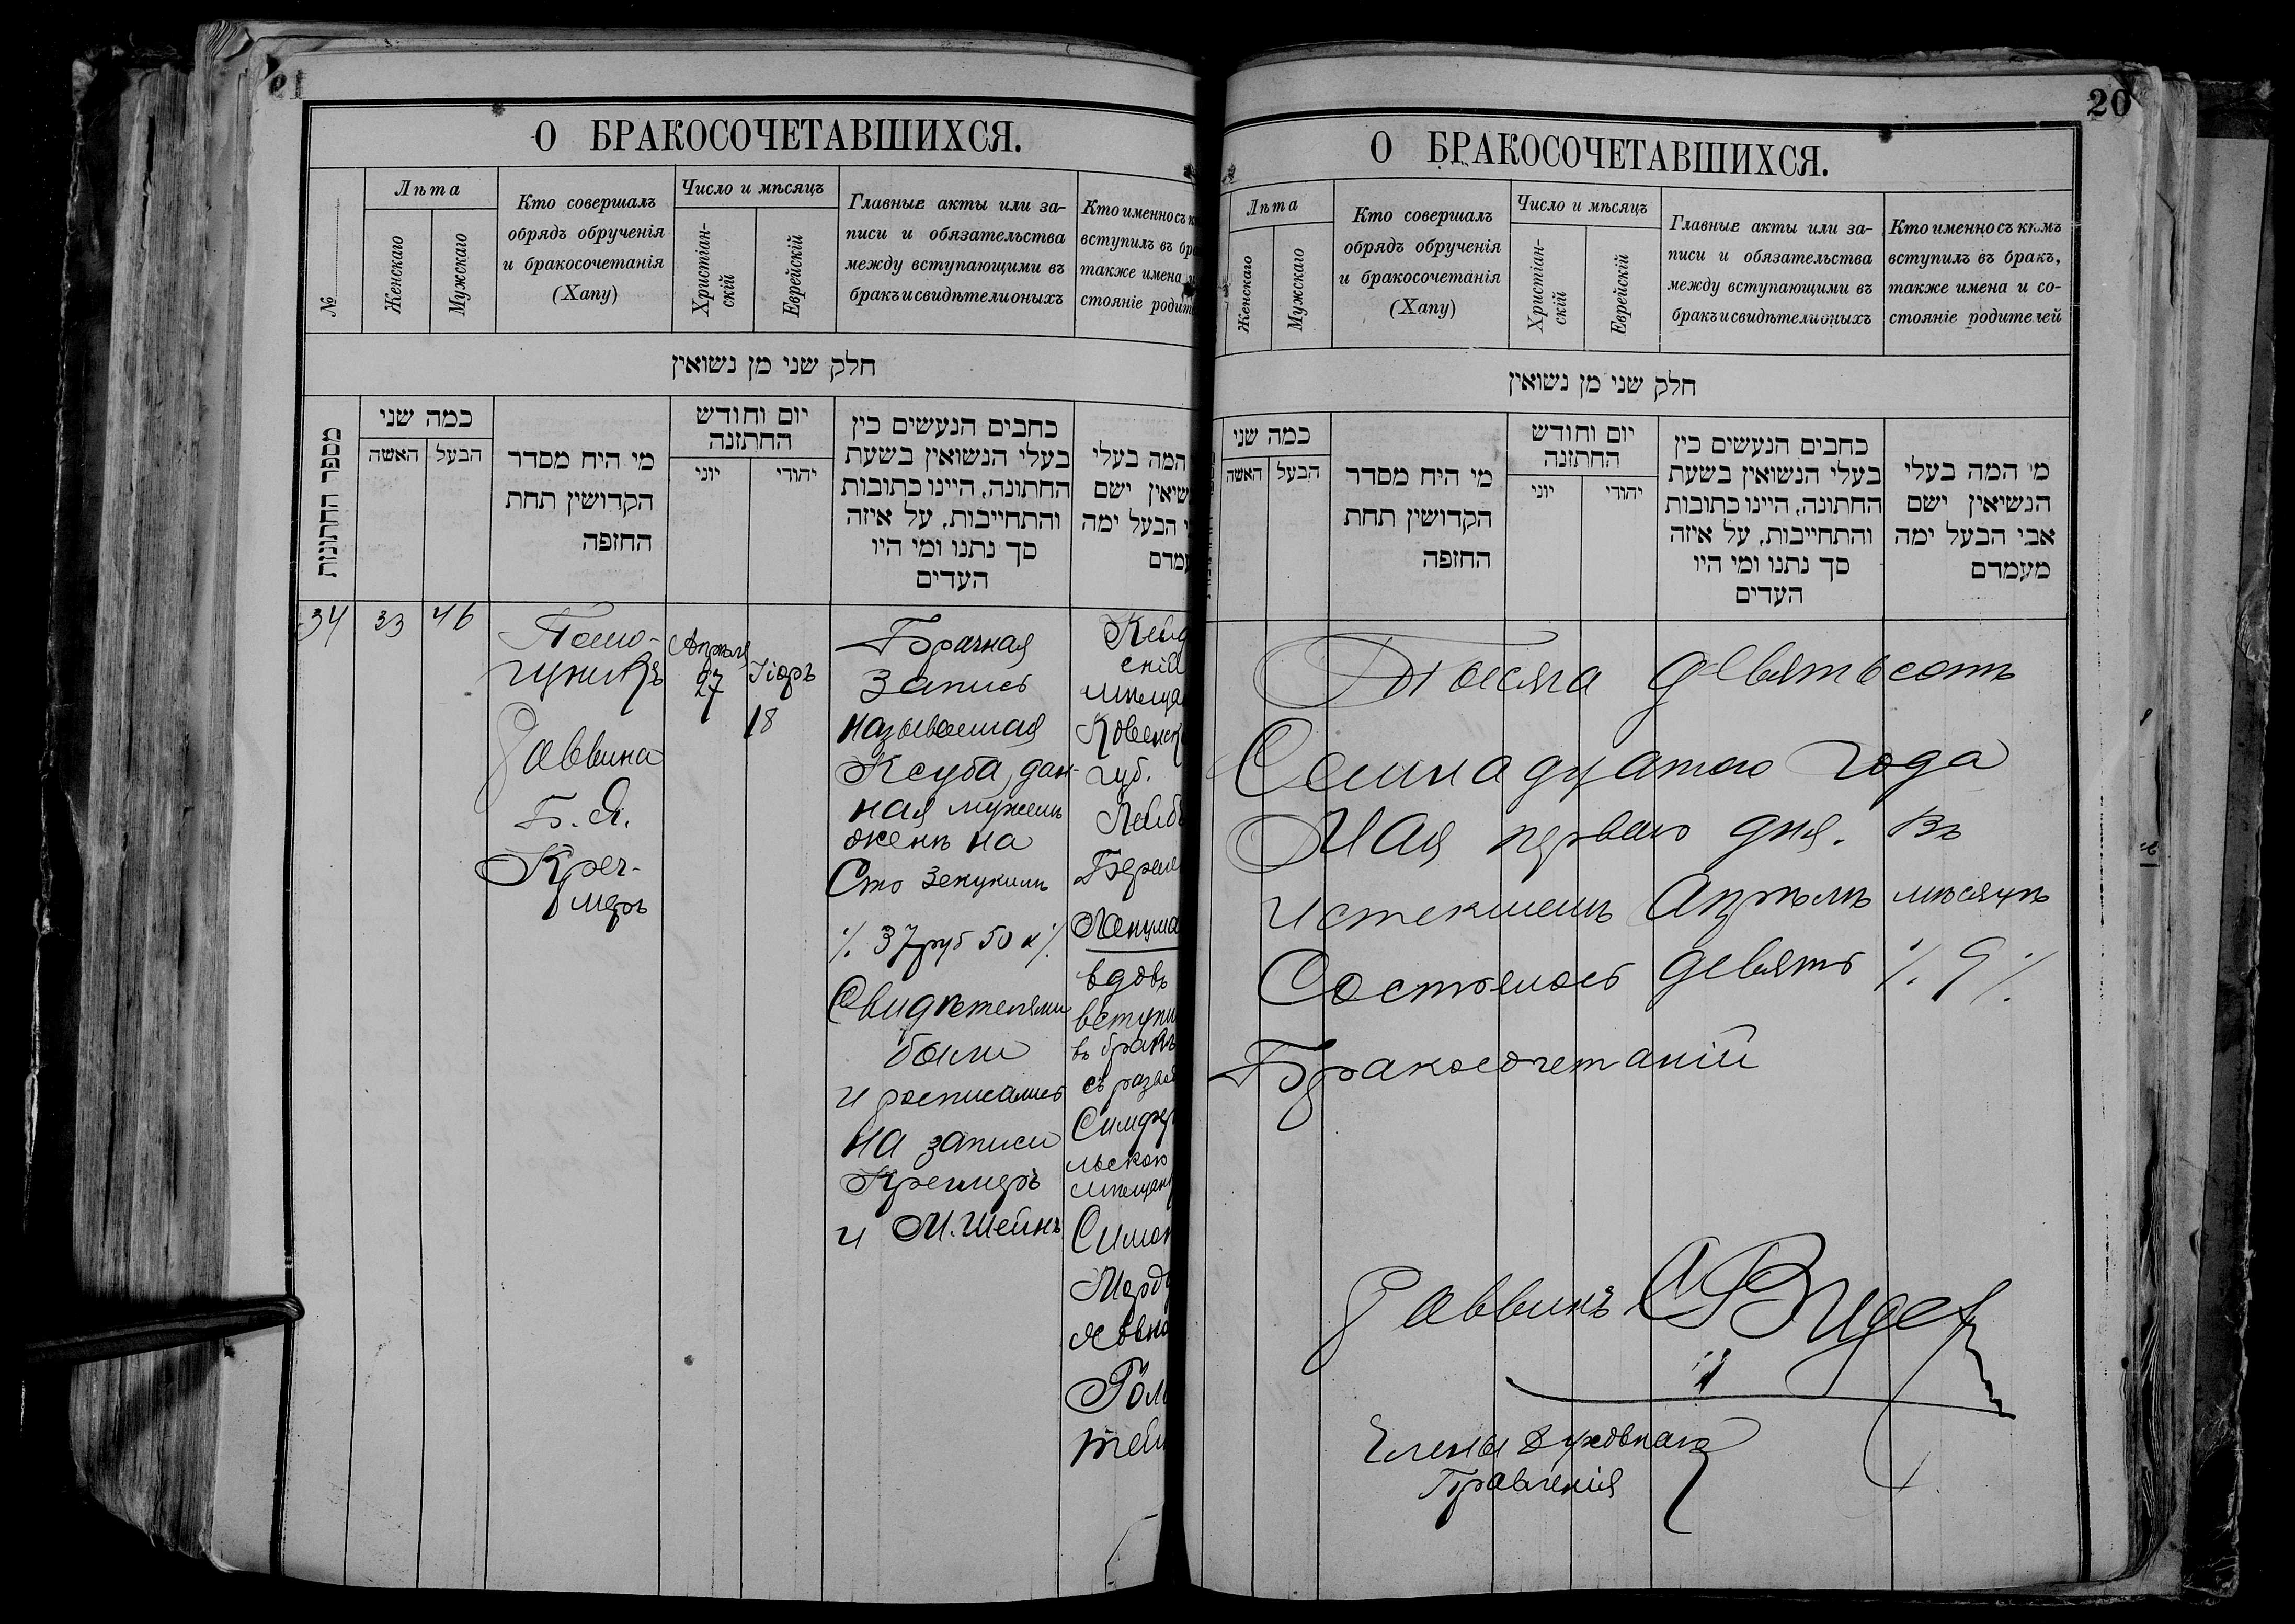 О БРАКОСОЧЕТАВШИХСЯ.
№
Лѣта
Женскаго
Мужскаго
Кто совершалъ
обрядъ обрученія
и бракосочетанія
(Хапу)
Число и мѣсяцъ
Христіан-
скій
Еврейскій
Главные акты или за-
писи и обязательства
между вступающими въ
бракъ и свидѣтели оныхъ
Кто именно съ к
вступилъ въ бра
также имена и
стояніе родите
חלק שני מן נשואין
מספר החתונות
כמה שני
האשה
הבעל
מי היח מסדר
הקדושין תחת
החזפה
יום וחודש
החתזנה
יוני
יהודי
כחבים הנעשים כין
בעלי הנשואין בשעת
החתונה, היינו כתובות
והתחייבות, על איזה
סך נתנו ומי היו
העדים
המה בעלי
שיאין ישם
י הבעל ימה
עמדם
34
33
46
Помо-
щникъ
Раввина
Б. Я.
Креч-
меръ
Апрѣля
27
Ііоръ
18
Брачная
запись
называемая
Ксуба, дан-
ная мужемъ
женѣ на
Сто зекукимъ
٪ 37 руб 50 к ٪
Свидѣтелями
были
и росписались
на записи
Кречмеръ
и М. Шейнъ
Кейд
скій
мѣща
Ковенск
губ.
Лейб
Берел
вдов
вступи
въ бракъ
съ разв
Симфер
льскою
мѣщан
Симон
Мерд
овно
Гол
тей
20
О БРАКОСОЧЕТАВШИХСЯ.
Лѣта
Женскаго
Мужскаго
Кто совершалъ
обрядъ обрученія
и бракосочетанія
(Хапу)
Число и мѣсяцъ
Христіан-
скій
Еврейскій
Главные акты или за-
писи и обязательства
между вступающими въ
бракъ и свидѣтели оныхъ
Кто именно съ кѣмъ
вступилъ въ бракъ,
также имена и со-
стояніе родителей
חלק שני מן נשואין
כמה שני
האשה
הבעל
מי היח מסדר
הקדושין תחת
החזפה
יום וחודש
החתזנה
יוני
יהודי
כחבים הנעשים כין
בעלי הנשואין בשעת
החתונה, היינו כתובות
והתחייבות, על איזה
סך נתנו ומי היו
העדים
מי המה בעלי
הנשיאין ישם
אבי הבעל ימה
מעמדם
Тысяча девятьсотъ
Семнадцатаго года
Мая перваго дня. Въ
истекшемъ Апрѣлѣ мѣсяцѣ
Состоялось девять ٪ 9 ٪
Бракосочетаній
Раввинъ
Члены Духовнаго
Правленія